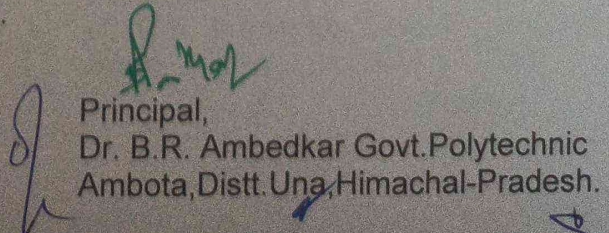 Principal,
Dr. B.R. Ambedkar Govt.Polytechnic
Ambota,Distt.Una,Himachal-Pradesh.